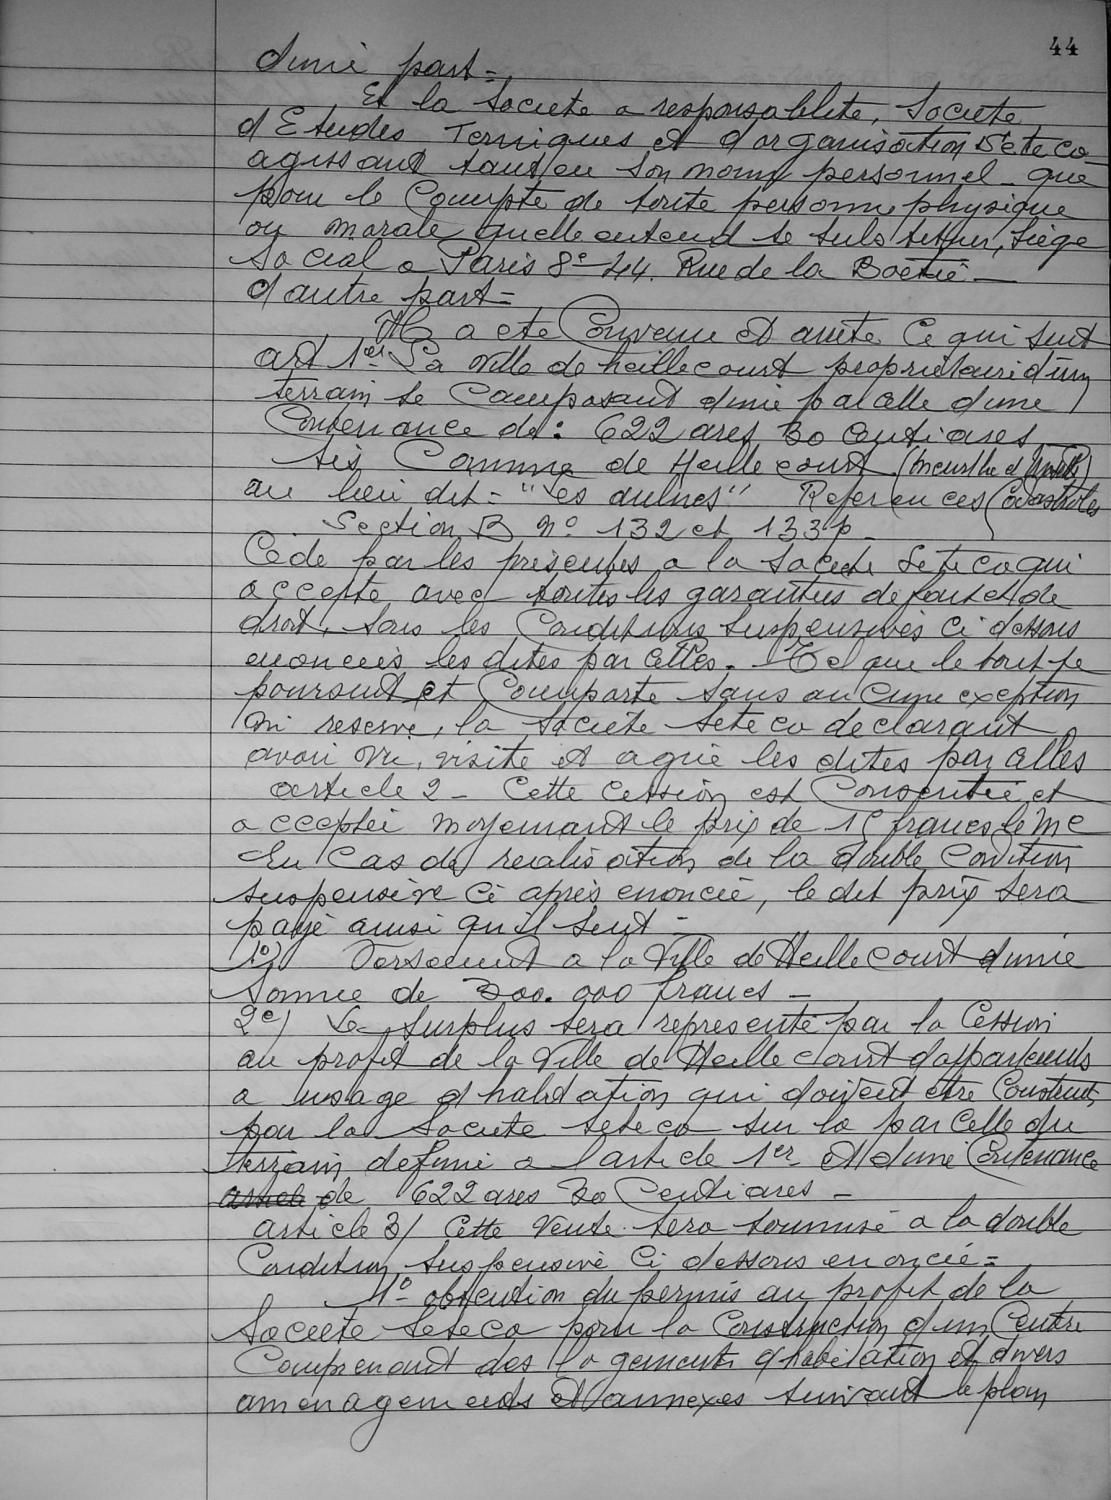 44
d'une part =
Et la Societe a responsabilite, Societe
d Etudes Terniques et d'organisation Seteco
agissant tant en son nom personnel - que
pour le Compte de toute personne physique
ou morale quelle entend se substituer, siège
Social a Paris 8e - 44. Rue de la Boetie -
d'autre part =
Il a ete Convenu et arrete Ce qui suit
art 1er La Ville de heillecourt proprietaire d'un
terrain se Composant d'une parcelle d'une
Contenance de : 622 ares 30 Centiares
sis Commune de Heillecourt (meurthe et Moselle)
au lieu dit = "Les aulnes" References Cadastrales
Section B n° 132 et 133p -
Cède par les présentes a la Societe Seteco qui
accepte avec toutes les garanties de fait et de
droit, sous les Conditions suspensives Ci dessous
enoncées les dites parcelles. Tel que le tout se
poursuit et Comporte sans aucune exception
ni reserve, la Societe Seteco declarant
avoir vu, visite et agrée les dites parcelles
article 2 - Cette Cession est Consentie et
acceptée moyennant le prix de 15 francs le m c
En Cas de realisation de la double Condition
suspensive Ci après enoncée, le dit prix sera
payé ainsi qu'il suit =
1°) Versement a la Ville de Heillecourt d'une
Somme de 300.000 francs -
2e) Le Surplus sera représenté par la Cession
au profit de la Ville de Heillecourt d'appartements
a usage d'habitation qui doivent etre Construits
par la Societe Seteco sur la parcelle du
terrain definie a l'article 1er et d'une Contenance
article de 622 ares 30 Centiares -
article 3/ Cette Vente sera soumise a la double
Condition suspensive Ci dessous enoncée =
1° obtention du permis au profit de la
Societe Seteco pour la Construction d'un Centre
Comprenant des logements d'habitation et divers
amenagements et annexes suivant le plan